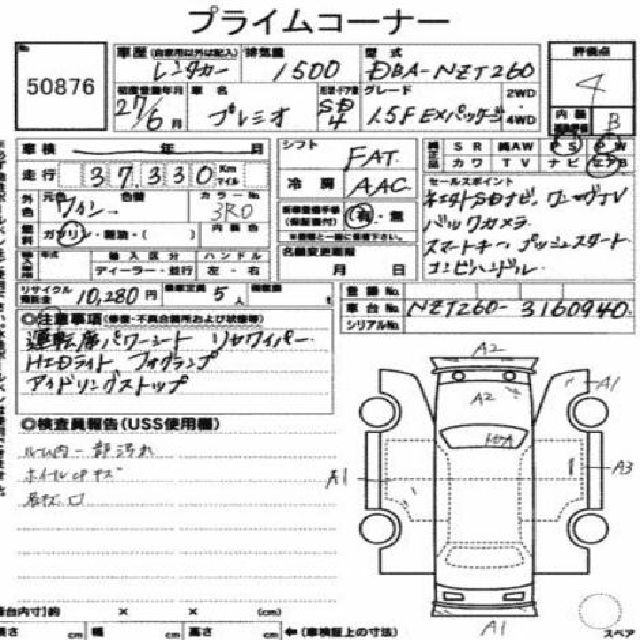 プライムコーナー
No.
50876
車歴 (自家用以外は記入) レンタカー
排気量 1500
型式 DBA-NZT260
評価点 4
初度登録年月 27/6月
車名 プレミオ
形状・ドア数 SD 4
グレード 1.5F EXパッケージ
2WD
4WD
内装 B
車検 年 月 日
シフト FAT
冷房 AAC
純正品 SR 純AW PS PW
カワ TV ナビ エアB
走行 37,330 Km マイル
セールスポイント
SDナビ ワンセグTV
バックカメラ
スマートキー プッシュスタート
コンビハンドル
外色 元色 ワイン 色替
カラーNo. 3R0
内装色
燃料 ガソリン・軽油・( )
(保証書付) 有・無
輸入車 年式 輸入区分 ハンドル
ディーラー・並行 左・右
名義変更期限
月 日
リサイクル預託金 10,280円
乗車定員 5人
積載量 t
登録No.
車台No. NZT260-3160940
シリアルNo.
◎注意事項(修復・不具合箇所および状態等)
運転席パワーシート リヤワイパー
HIDライト フォグランプ
アイドリングストップ
◎検査員報告(USS使用欄)
ルーム内一部汚れ
ホイールCPキズ
A2
A1
A2
A1
A3
A1
荷台内寸)約 × × (cm)
長さ cm 幅 cm 高さ cm ←(車検証上の寸法)
スペア